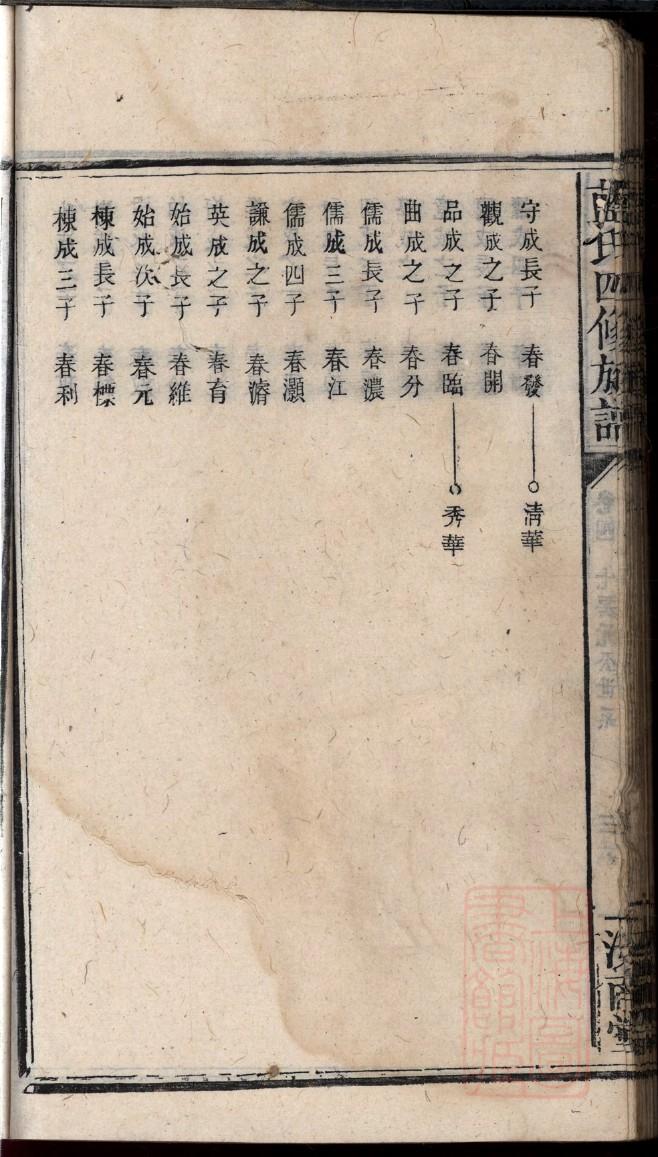 氏四修族譜
卷四
守成長子 春發 清華
觀成之子 春開
品成之子 春臨 秀華
曲成之子 春分
儒成長子 春濃
儒成三子 春江
儒成四子 春灝
謙成之子 春濬
英成之子 春育
始成長子 春維
始成次子 春元
棟成長子 春標
棟成三子 春利
上海圖書館藏